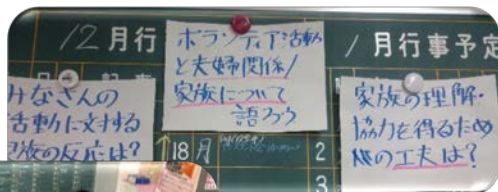 12月行
1月行事予定
ボランティア活動
と夫婦関係/
家族について
語ろう
みなさんの
活動に対する
家族の反応は?
家族の理解・
協力を得るため
の工夫は?
18 月
2
3